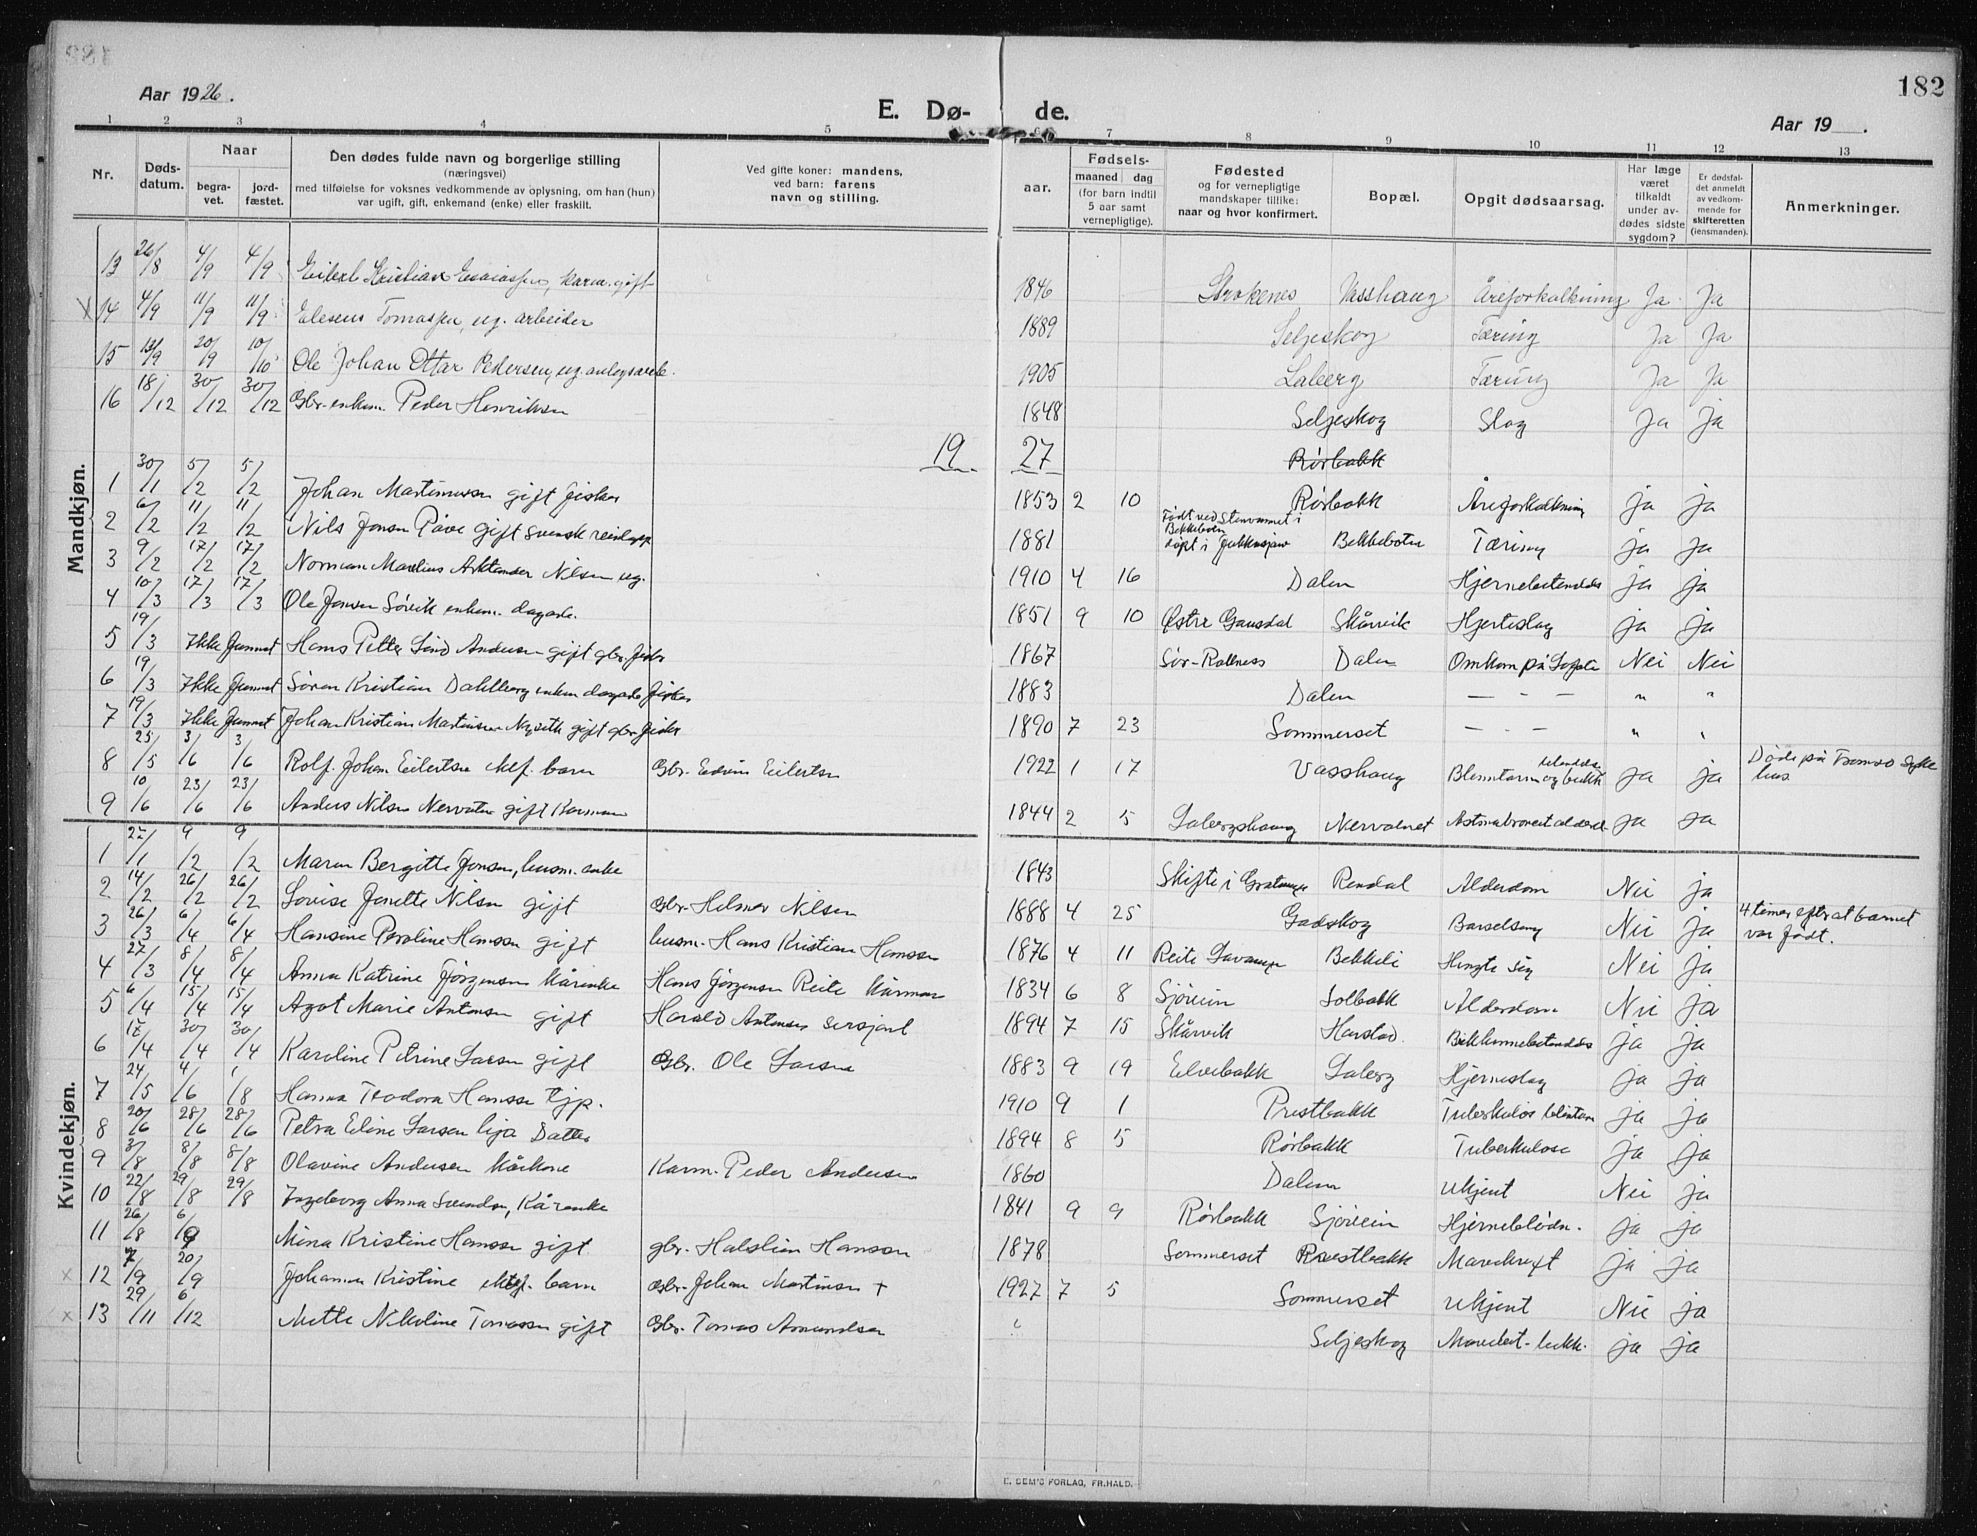 182
Aar 1926.
E. Dø- de.
Aar 19 .
1 2 3 4 5 6 7 8 9 10 11 12 13
Nr.
Døds-
datum.
Naar
begra-
vet.
jord-
fæstet.
Den dødes fulde navn og borgerlige stilling
(næringsvei)
med tilføielse for voksnes vedkommende av oplysning, om han (hun)
var ugift, gift, enkemand (enke) eller fraskilt.
Ved gifte koner: mandens,
ved barn: farens
navn og stilling.
aar.
Fødsels-
maaned dag
(for barn indtil
5 aar samt
vernepligtige).
Fødested
og for vernepligtige
mandskaper tillike:
naar og hvor konfirmert.
Bopæl.
Opgit dødsaarsag.
Har læge
været
tilkaldt
under av-
dødes sidste
sygdom?
Er dødsfal-
det anmeldt
av vedkom-
mende for
skifteretten
(lensmanden).
Anmerkninger.
Mandkjøn.
13 26/8 4/9 4/9 Kristian gift 1846 Vasshaug Åreforkalkning Ja Ja
14 4/9 11/9 11/9 Eleseus Tomassen, ug. arbeider 1889 Seljeskog Tæring Ja Ja
15 13/9 20/9 10/10 Ole Johan Ottar Pedersen, ug. 1905 Laberg Tæring Ja Ja
16 18/12 30/12 30/12 Gbr. enkem. Peder Henriksen 1848 Seljeskog Slag Ja Ja
19 27 Rørbakk
1 30/1 5/2 5/2 Johan Martinussen gift fisker 1853 2 10 Rørbakk Åreforkalkning ja ja
2 6/2 11/2 11/2 Nils Jonsen Påve gift svensk reinlapp 1881 Født ved Stenvannet i Bekkeboten døpt i Jukkasjær Bekkebotn Tæring ja ja
3 9/2 17/2 17/2 Norman Marelius Nilsen ug. 1910 4 16 Dalen Hjernebetendels ja ja
4 10/3 17/3 17/3 Ole Jonsen Sørvik enkem. dagarb. 1851 9 10 Østre Gausdal Skårvik Hjerteslag ja ja
5 19/3 Ikke funnet Hans Petter Lind Andersen gift gbr. fisker 1867 Sør-Rollness Dalen Omkom på Nei Nei
6 19/3 Ikke funnet Søren Kristian Dahlberg enkem dagarb. fisker 1883 Dalen — - — " "
7 19/3 Ikke funnet Johan Kristian Martinsen gift gbr. fisker 1890 7 23 Sommerset — - — " "
8 25/5 3/6 3/6 Rolf Johan Eilertsen barn Gbr. Edvin Eilertsen 1922 1 17 Vasshaug Blenntarm og bukk betendelse ja ja Døde på Tromsø Syke hus.
9 10/6 23/6 23/6 Anders Nilsen Nervatn gift Kårmann 1844 2 5 Labergshaug Nervatnet ja ja
Kvindekjøn.
1 27/1 9/2 9/2 Maren Bergitte Jonsen, husm. enke 1843 Skifte i Gratangen Rendal Alderdom Nei ja
2 14/2 26/2 26/2 Lovise Jonette Nilsen gift Gbr. Helmer Nilsen 1888 4 25 Gadskog Barselseng Nei ja 4 timer efter at barnet var født.
3 26/3 6/4 6/4 Hansine Peroline Hanssen gift husm. Hans Kristian Hanssen 1876 4 11 Reite Lavangen Bekkeli Hengte sig Nei ja
4 27/3 8/4 8/4 Anna Katrine Jørgensen kårenke Hans Jørgensen Reite kårman 1834 6 8 Sjøvein Solbakk Alderdom Nei Ja
5 6/4 15/4 15/4 Agot Marie Antonsen gift Harald Antonsen sersjant 1894 7 15 Skårvik Harstad. ja ja
6 17/4 30/4 30/4 Karoline Petrine Larsen gift Gbr. Ole Larsen 1883 9 19 Elvebakk Laberg Hjerneslag ja ja
7 24/5 4/6 1/8 Hanna Teodora Hanssen tjp. 1910 9 1 Prestbakk Tuberkuløs ja ja
8 20/6 28/6 28/6 Petra Eline Larsen Datter 1894 8 5 Rørbakk Tuberkulose ja ja
9 3/8 8/8 8/8 Olavine Andersen kårkone Kårm. Peder Andersen 1860 Dalen Ukjent Nei ja
10 22/8 29/8 29/8 Ingeborg Anna Svendsen, Kårenke 1841 9 9 Rørbakk Sjøvein Hjerneblødn. ja ja
11 26/8 6/9 Mina Kristine Hanssen gift gbr. Hanssen 1878 Sommerset Prestbakk Mavekreft ja ja
12 7/9 20/9 Johanna Kristine barn Gbr. Johan Martinsen + 1927 7 5 Sommerset Ukjent Nei ja
13 29/11 6/12 Mette Nikoline Tomassen gift Gbr. Tomas Amundsen Seljeskog ja ja
E. SEM'S FORLAG, FR.HALD.